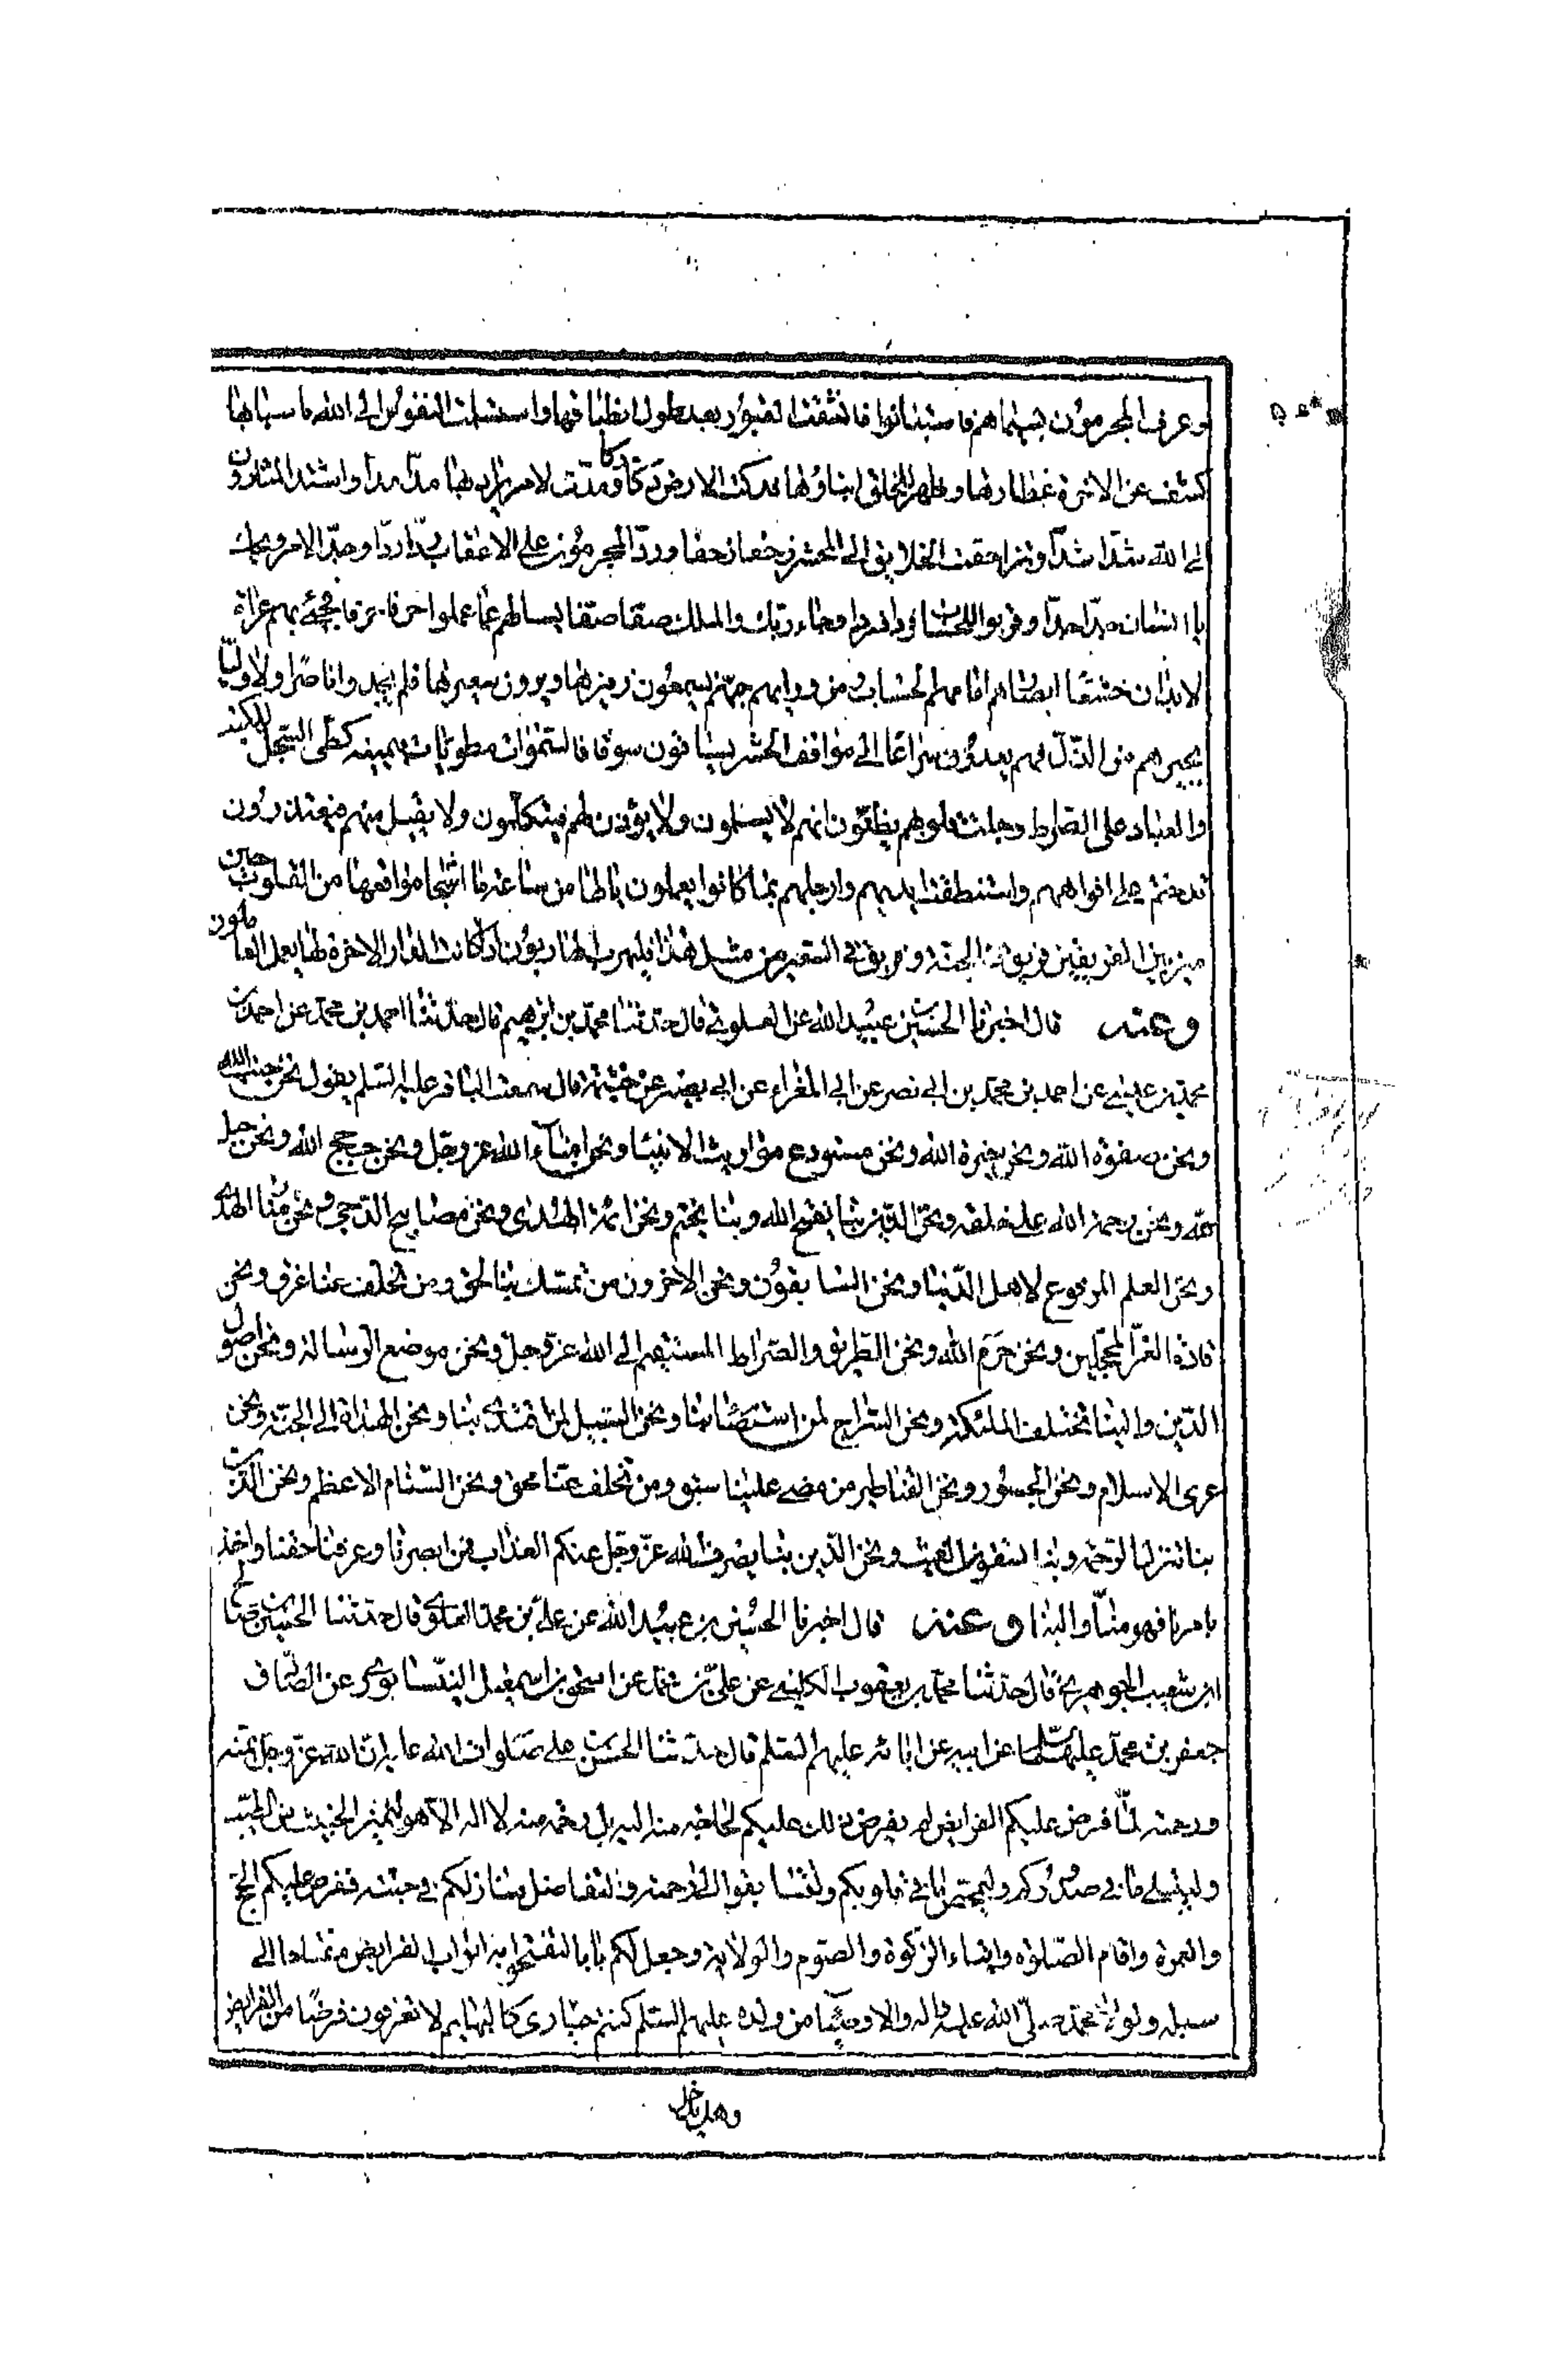 وعرف المجرمون بسيماهم فاستبانوا فانشقت القبور بعد طول انطباقها واستسلمت النفوس الى الله باسبابها
كشف عن الاخرة غطاؤها وظهر للخلق ابناؤها فدكت الارض دكا دكا ومدت لامر يراد بها مدا مدا واشتد المثارون
الى الله شدا شدا وتزاحفت الخلايق الى المحشر زحفا زحفا ورد المجرمون على الاعقاب ردا ردا وجد الامر ويحك
يا انسان جدا جدا وقربوا للحساب فردا فردا وجاء ربك والملك صفا صفا يسالهم عما عملوا حرفا حرفا فجئ بهم عراة
الابدان خشعا ابصارهم امامهم الحساب ومن ورائهم جهنم يسمعون زفيرها ويرون سعيرها فلم يجدوا ناصرا ولا وليا
يجيرهم من الذل فهم يعدون سراعا الى مواقف الحشر يساقون سوقا فالسموات مطويات بيمينه كطي السجل للكتب
والعباد على الصراط وجلت قلوبهم يظنون انهم لا يسلمون ولا يؤذن لهم فيتكلمون ولا يقبل منهم فيعتذرون
قد ختم على افواههم واستنطقت ايديهم وارجلهم بما كانوا يعملون يا لها من ساعة ما اشجا مواقعها من القلوب حين
ميز بين الفريقين فريق في الجنة وفريق في السعير من مثل هذا فليهرب الهاربون اذا كانت الدار الاخرة لها يعمل العاملون
وعنه قال اخبرنا الحسين بن عبيد الله عن العلوي قال حدثنا محمد بن ابرهيم قال حدثنا احمد بن محمد عن احمد بن
محمد بن عيسى عن احمد بن محمد بن ابي نصر عن ابي المغراء عن ابي بصير عن خيثمة قال سمعت الباقر عليه السلم يقول نحن جنب الله
ونحن صفوة الله ونحن خيرة الله ونحن مستودع مواريث الانبيا ونحن امناء الله عز وجل ونحن حجج الله ونحن حبل
الله ونحن رحمة الله على خلقه ونحن الذين بنا يفتح الله وبنا يختم ونحن ائمة الهدى ونحن مصابيح الدجى ونحن منار الهدى
ونحن العلم المرفوع لاهل الدنيا ونحن السابقون ونحن الاخرون من تمسك بنا لحق ومن تخلف عنا غرق ونحن
قادة الغر المحجلين ونحن حرم الله ونحن الطريق والصراط المستقيم الى الله عز وجل ونحن موضع الرسالة ونحن اصول
الدين والينا تختلف الملئكة ونحن السراج لمن استضاء بنا ونحن السبيل لمن اقتدى بنا ونحن الهداة الى الجنة ونحن
عرى الاسلام ونحن الجسور ونحن القناطير من مضى علينا سبق ومن تخلف عنا محق ونحن السنام الاعظم ونحن الذين
بنا تنزل الرحمة وبنا تسقون الغيث ونحن الذين بنا يصرف الله عز وجل عنكم العذاب فمن ابصرنا وعرفنا حقنا واخذ
بامرنا فهو منا والينا وعنه قال اخبرنا الحسين بن عبيد الله عن علي بن محمد العلوي قال حدثنا الحسين بن صالح
ابن شعيب الجوهري قال حدثنا محمد بن يعقوب الكليني عن علي بن محمد عن اسحق بن اسمعيل النيسابوري عن الصادق
جعفر بن محمد عليهما السلم عن ابيه عن ابائه عليهم السلم قال حدثنا الحسن بن علي صلوات الله عليه ان الله عز وجل بمنه
ورحمته لما فرض عليكم الفرايض لم يفرض ذلك عليكم لحاجة منه اليه بل رحمة منه لا اله الا هو ليميز الخبيث من الطيب
وليبتلي ما في صدوركم وليمحص ما في قلوبكم ولتسابقوا الى رحمته ولتتفاضل منازلكم في جنته ففرض عليكم الحج
والعمرة واقام الصلوة وايتاء الزكوة والصوم والولاية وجعل لكم بابا لتفتحوا به ابواب الفرايض مفتاحا الى
سبله ولولا محمد صلى الله عليه واله والاوصيا من ولده عليهم السلم كنتم حيارى كالبهايم لا تعرفون فرضا من الفرايض
وهل يدخل